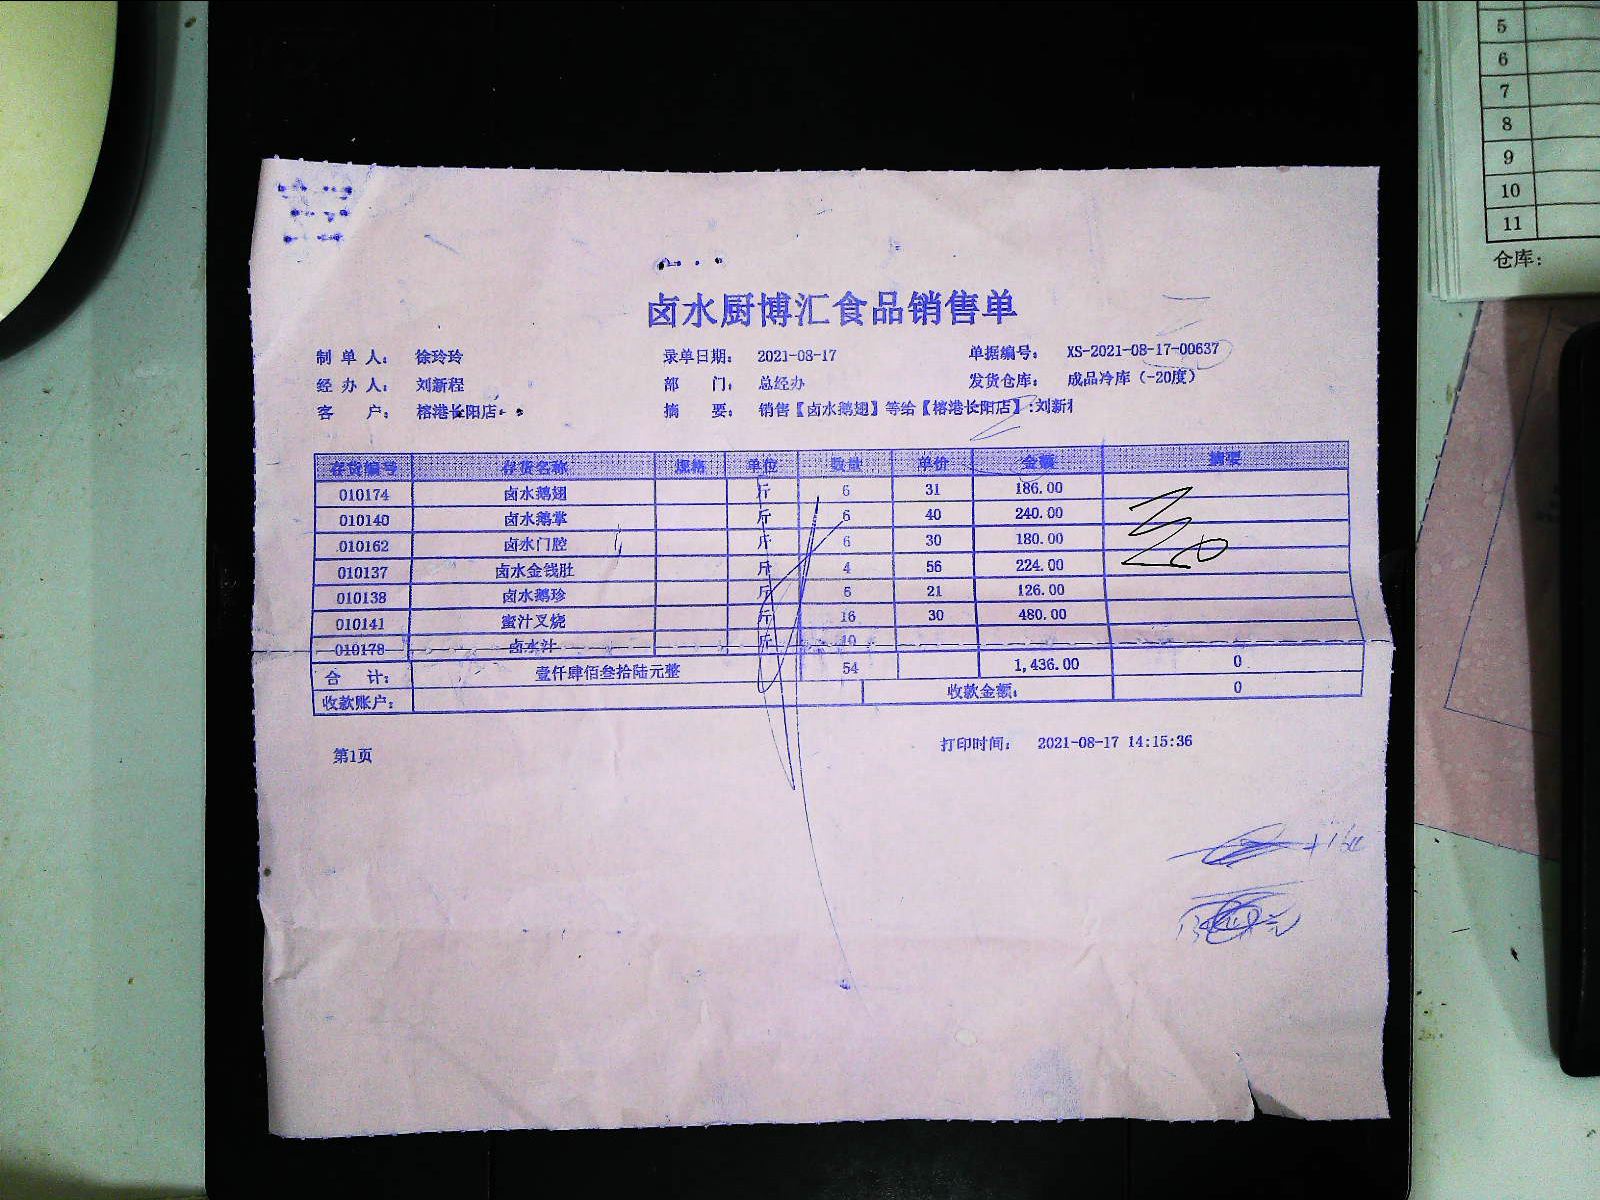 5
6
7
8
9
10
11
仓库:
卤水厨博汇食品销售单
制单人: 徐玲玲 录单日期: 2021-08-17 单据编号: XS-2021-08-17-00637
经办人: 刘新程 部 门: 总经办 发货仓库: 成品冷库(-20度)
客 户: 榕港长阳店 摘 要: 销售【卤水鹅翅】等给【榕港长阳店】:刘新
存货编号 存货名称 规格 单位 数量 单价 金额 摘要
010174 卤水鹅翅 斤 6 31 186.00
010140 卤水鹅掌 斤 6 40 240.00
010162 卤水门腔 斤 6 30 180.00
010137 卤水金钱肚 斤 4 56 224.00
010138 卤水鹅珍 斤 6 21 126.00
010141 蜜汁叉烧 斤 16 30 480.00
010178 卤水汁 斤 10
合 计: 壹仟肆佰叁拾陆元整 54 1,436.00 0
收款账户: 收款金额: 0
第1页 打印时间: 2021-08-17 14:15:36